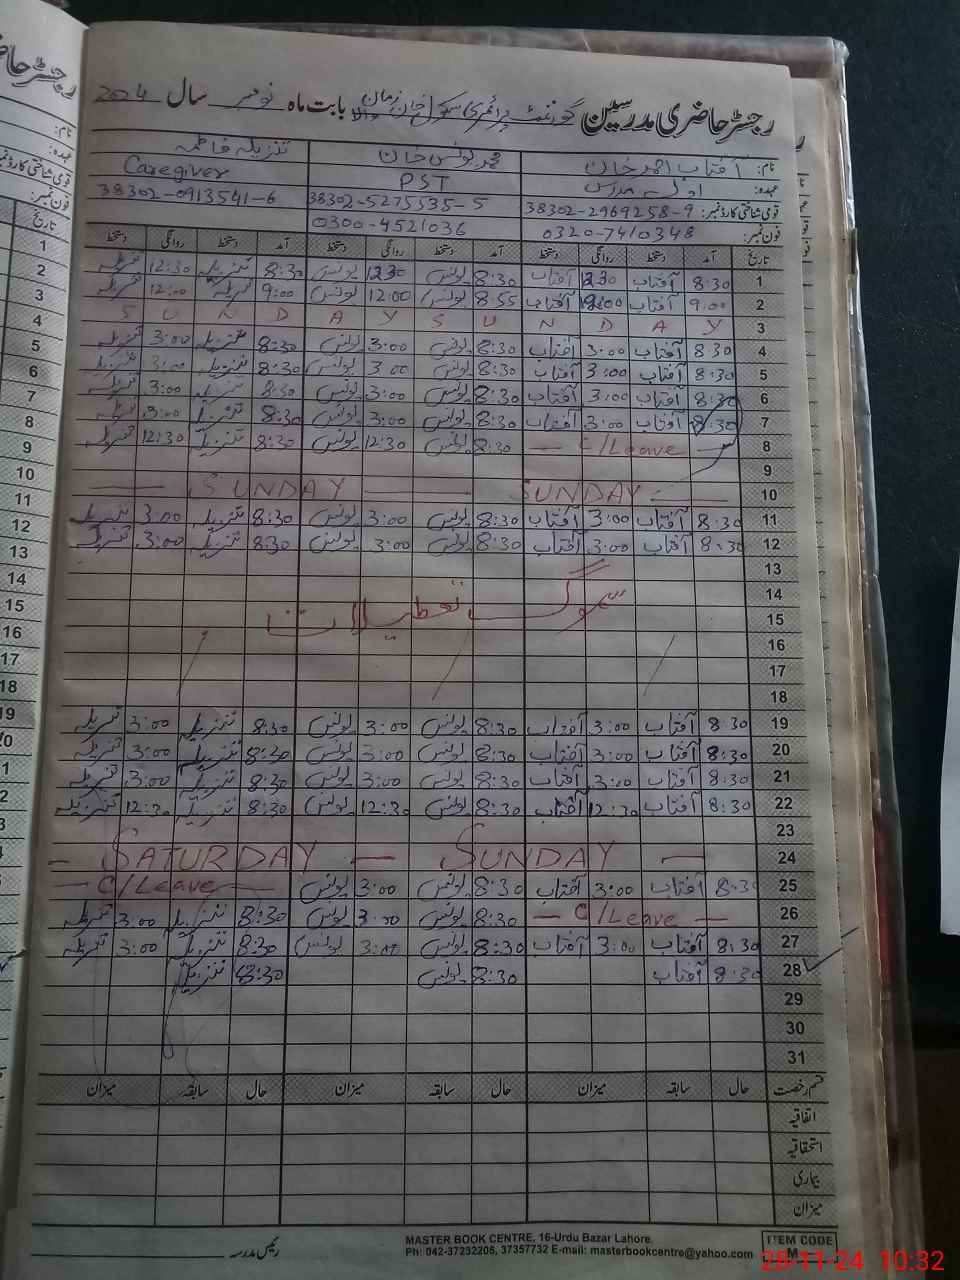 رجسٹر حاضری مدرسین گورنمنٹ پرائمری سکول بابت ماہ نومبر سال 2024
نام: آفتاب احمد خان محمد یونس خان تنزیلہ فاطمہ
عہدہ: PST Caregiver
قومی شناختی کارڈ نمبر: 38302-2969258-9 38302-5275535-5 38302-0913541-6
فون نمبر: 0320-7410348 0300-4521036
تاریخ آمد دستخط روانگی دستخط آمد دستخط روانگی دستخط آمد دستخط روانگی دستخط
1 8:30 آفتاب 12:30 آفتاب 8:30 یونس 12:30 یونس 8:30 تنزیلہ 12:30 تنزیلہ
2 9:00 آفتاب 12:00 آفتاب 8:55 یونس 12:00 یونس 9:00 تنزیلہ 12:00 تنزیلہ
3 S U N D A Y S U N D A Y
4 8:30 آفتاب 3:00 آفتاب 8:30 یونس 3:00 یونس 8:30 تنزیلہ 3:00 تنزیلہ
5 8:30 آفتاب 3:00 آفتاب 8:30 یونس 3:00 یونس 8:30 تنزیلہ 3:00 تنزیلہ
6 8:30 آفتاب 3:00 آفتاب 8:30 یونس 3:00 یونس 8:30 تنزیلہ 3:00 تنزیلہ
7 8:30 آفتاب 3:00 آفتاب 8:30 یونس 3:00 یونس 8:30 تنزیلہ 3:00 تنزیلہ
8 — C/Leave — 8:30 یونس 12:30 یونس 8:30 تنزیلہ 12:30 تنزیلہ
9
10 — SUNDAY — — SUNDAY —
11 8:30 آفتاب 3:00 آفتاب 8:30 یونس 3:00 یونس 8:30 تنزیلہ 3:00 تنزیلہ
12 8:30 آفتاب 3:00 آفتاب 8:30 یونس 3:00 یونس 8:30 تنزیلہ 3:00 تنزیلہ
13
14
سموگ تعطیلات
15
16
17
18
19 8:30 آفتاب 3:00 آفتاب 8:30 یونس 3:00 یونس 8:30 تنزیلہ 3:00 تنزیلہ
20 8:30 آفتاب 3:00 آفتاب 8:30 یونس 3:00 یونس 8:30 تنزیلہ 3:00 تنزیلہ
21 8:30 آفتاب 3:00 آفتاب 8:30 یونس 3:00 یونس 8:30 تنزیلہ 3:00 تنزیلہ
22 8:30 آفتاب 12:30 آفتاب 8:30 یونس 12:30 یونس 8:30 تنزیلہ 12:30 تنزیلہ
23
24 — SATURDAY — SUNDAY —
25 8:30 آفتاب 3:00 آفتاب 8:30 یونس 3:00 یونس — C/Leave —
26 — C/Leave — 8:30 یونس 3:00 یونس 8:30 تنزیلہ 3:00 تنزیلہ
27 8:30 آفتاب 3:00 آفتاب 8:30 یونس 3:00 یونس 8:30 تنزیلہ 3:00 تنزیلہ
28 8:30 آفتاب 8:30 یونس 8:30 تنزیلہ
29
30
31
قسم رخصت حال سابقہ میزان حال سابقہ میزان حال سابقہ میزان
اتفاقیہ
استحقاقیہ
بیماری
میزان
رئیس مدرسہ
MASTER BOOK CENTRE, 16-Urdu Bazar Lahore.
Ph: 042-37232205, 37357732 E-mail: masterbookcentre@yahoo.com
ITEM CODE
28-11-24 10:32